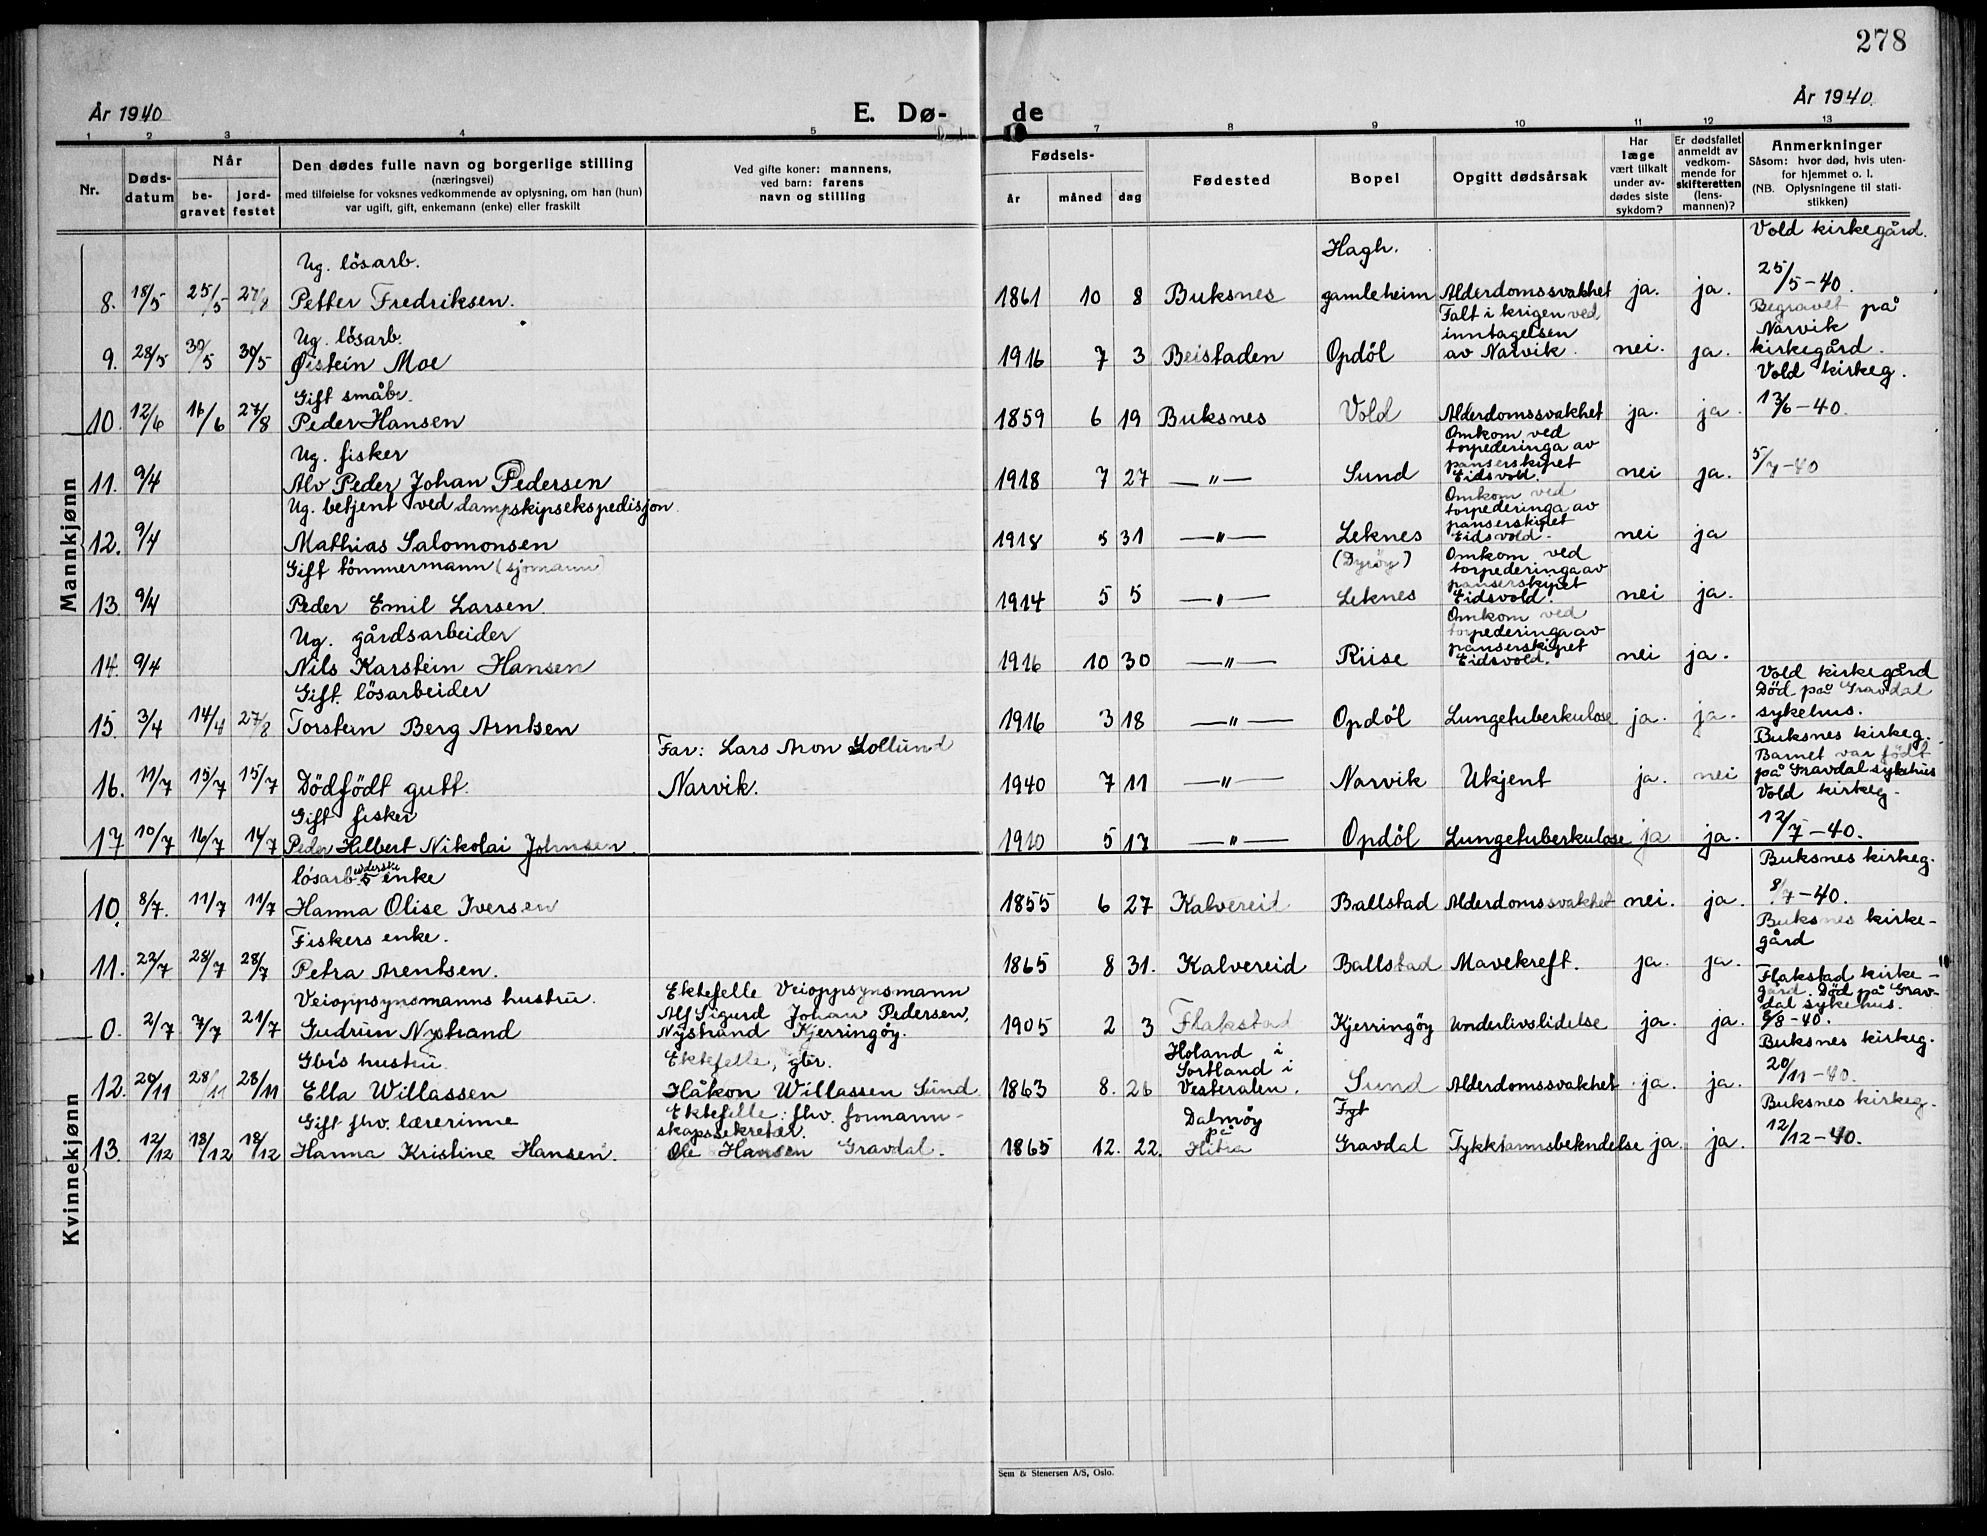 278
År 1940
E. Dø-
de
År 1940
1 2 3 4 5 7 8 9 10 11 12 13
Nr.
Døds-
datum
Når
be-
gravet
jord-
festet
Den dødes fulle navn og borgerlige stilling
(næringsvei)
med tilføielse for voksnes vedkommende av oplysning, om han (hun)
var ugift, gift, enkemann (enke) eller fraskilt
Ved gifte koner: mannens,
ved barn: farens
navn og stilling
Fødsels-
år
måned
dag
Fødested
Bopel
Opgitt dødsårsak
Har
læge
vært tilkalt
under av-
dødes siste
sykdom?
Er dødsfallet
anmeldt av
vedkom-
mende for
skifteretten
(lens-
mannen)?
Anmerkninger
Såsom: hvor død, hvis uten-
for hjemmet o. l.
(NB. Oplysningene til stati-
stikken)
Mannkjønn
Ug. løsarb. Hagh. Vold kirkegård.
8. 18/5 25/5 27/8 Petter Fredriksen. 1861 10 8 Buksnes gamleheim Alderdomssvakhet ja. ja. 25/5-40.
Ug. løsarb. Falt i krigen ved Begravet på
inntagelsen Narvik
9. 28/5 30/5 30/5 Øistein Moe 1916 7 3 Beistaden Opdøl av Narvik. nei. ja. kirkegård.
Gift småbr. Vold kirkeg.
10. 12/6 16/6 27/8 Peder Hansen 1859 6 19 Buksnes Vold Alderdomssvakhet ja. ja. 13/6-40.
Ug. fisker Omkom ved
torpederinga av
panserskipet
11. 9/4 Alv Peder Johan Pedersen 1918 7 27 —"— Sund Eidsvold. nei ja. 5/7-40
Ug. betjent ved dampskipsekspedisjon. Omkom ved
torpederinga av
panserskipet
12. 9/4 Mathias Salomonsen 1918 5 31 —"— Leknes Eidsvold. nei ja
Gift tømmermann (sjømann) (Dyrøy) Omkom ved
torpederinga av
panserskipet
13. 9/4 Peder Emil Larsen 1914 5 5 —"— Leknes Eidsvold. nei ja.
Ug. gårdsarbeider Omkom ved
torpederinga av
panserskipet
14. 9/4 Nils Karstein Hansen 1916 10 30 —"— Riise Eidsvold. nei ja.
Gift løsarbeider Vold kirkegård
Död på Gravdal
15. 3/4 14/4 27/8 Torstein Berg Arntsen 1916 3 18 —"— Opdøl Lungetuberkulose ja. ja. sykehus.
Far: Lars Aron Sollund Buksnes kirkeg.
Barnet var født
16. 11/7 15/7 15/7 Dödfödt gutt. Narvik. 1940 7 11 —"— Narvik Ukjent ja. nei på Gravdal sykehus
Gift fisker Vold kirkeg.
17 10/7 16/7 14/7 Peder Hilbert Nikolai Johnsen. 1910 5 17 —"— Opdöl Lungetuberkulose ja ja. 12/7-40.
Kvinnekjønn
løsarb.s enke Buksnes kirkeg.
10. 8/7. 11/7 11/7 Hanna Olise Iversen 1855 6 27 Kalvereid Ballstad Alderdomssvakhet nei. ja. 8/7-40.
Fiskers enke. Buksnes kirke-
gård
11. 22/7 28/7 28/7 Petra Arentsen. 1865 8 31. Kalvereid Ballstad Mavekreft. ja. ja.
Veioppsynsmanns hustru. Ektefelle Veioppsynsmann Flakstad kirke-
Alf Sigurd Johan Pedersen, gård. Död på Grav-
dal sykehus.
0. 2/7 7/7 21/7 Gudrun Nystrand Nystrand Kjerringøy. 1905 2 3 Flakstad Kjerringøy Underlivslidelse ja. ja. 8/8-40.
Gbr's hustru. Ektefelle, gbr. Holand i Buksnes kirkeg.
Sortland i
12. 20/11 28/11 28/11 Ella Willassen Håkon Willassen Sund. 1863 8. 26 Vesterålen. Sund Alderdomssvakhet ja. ja. 20/11-40.
Gift fhv. lærerinne Ektefelle: fhv. formann- Dalmøy Buksnes kirkeg.
skapssekretær. på
13. 12/12 18/12 18/12 Hanna Kristine Hansen. Ole Hansen Gravdal. 1865 12. 22. Hitra Gravdal Tykktarmsbetendelse ja. ja. 12/12-40.
Sem & Stenersen A/S, Oslo.